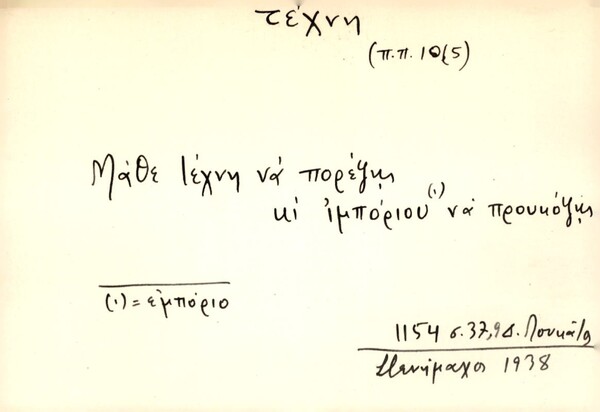 τέχνη
(π.π. 10{5)
Μάθε τέχνη νά πορέζης
κί ἰμπόριου(1) νά προυκόζης
(1) = ἐμπόριο
1154 σ. 37, 9 Δ. Λουκάτο
Στενήμαχος 1938